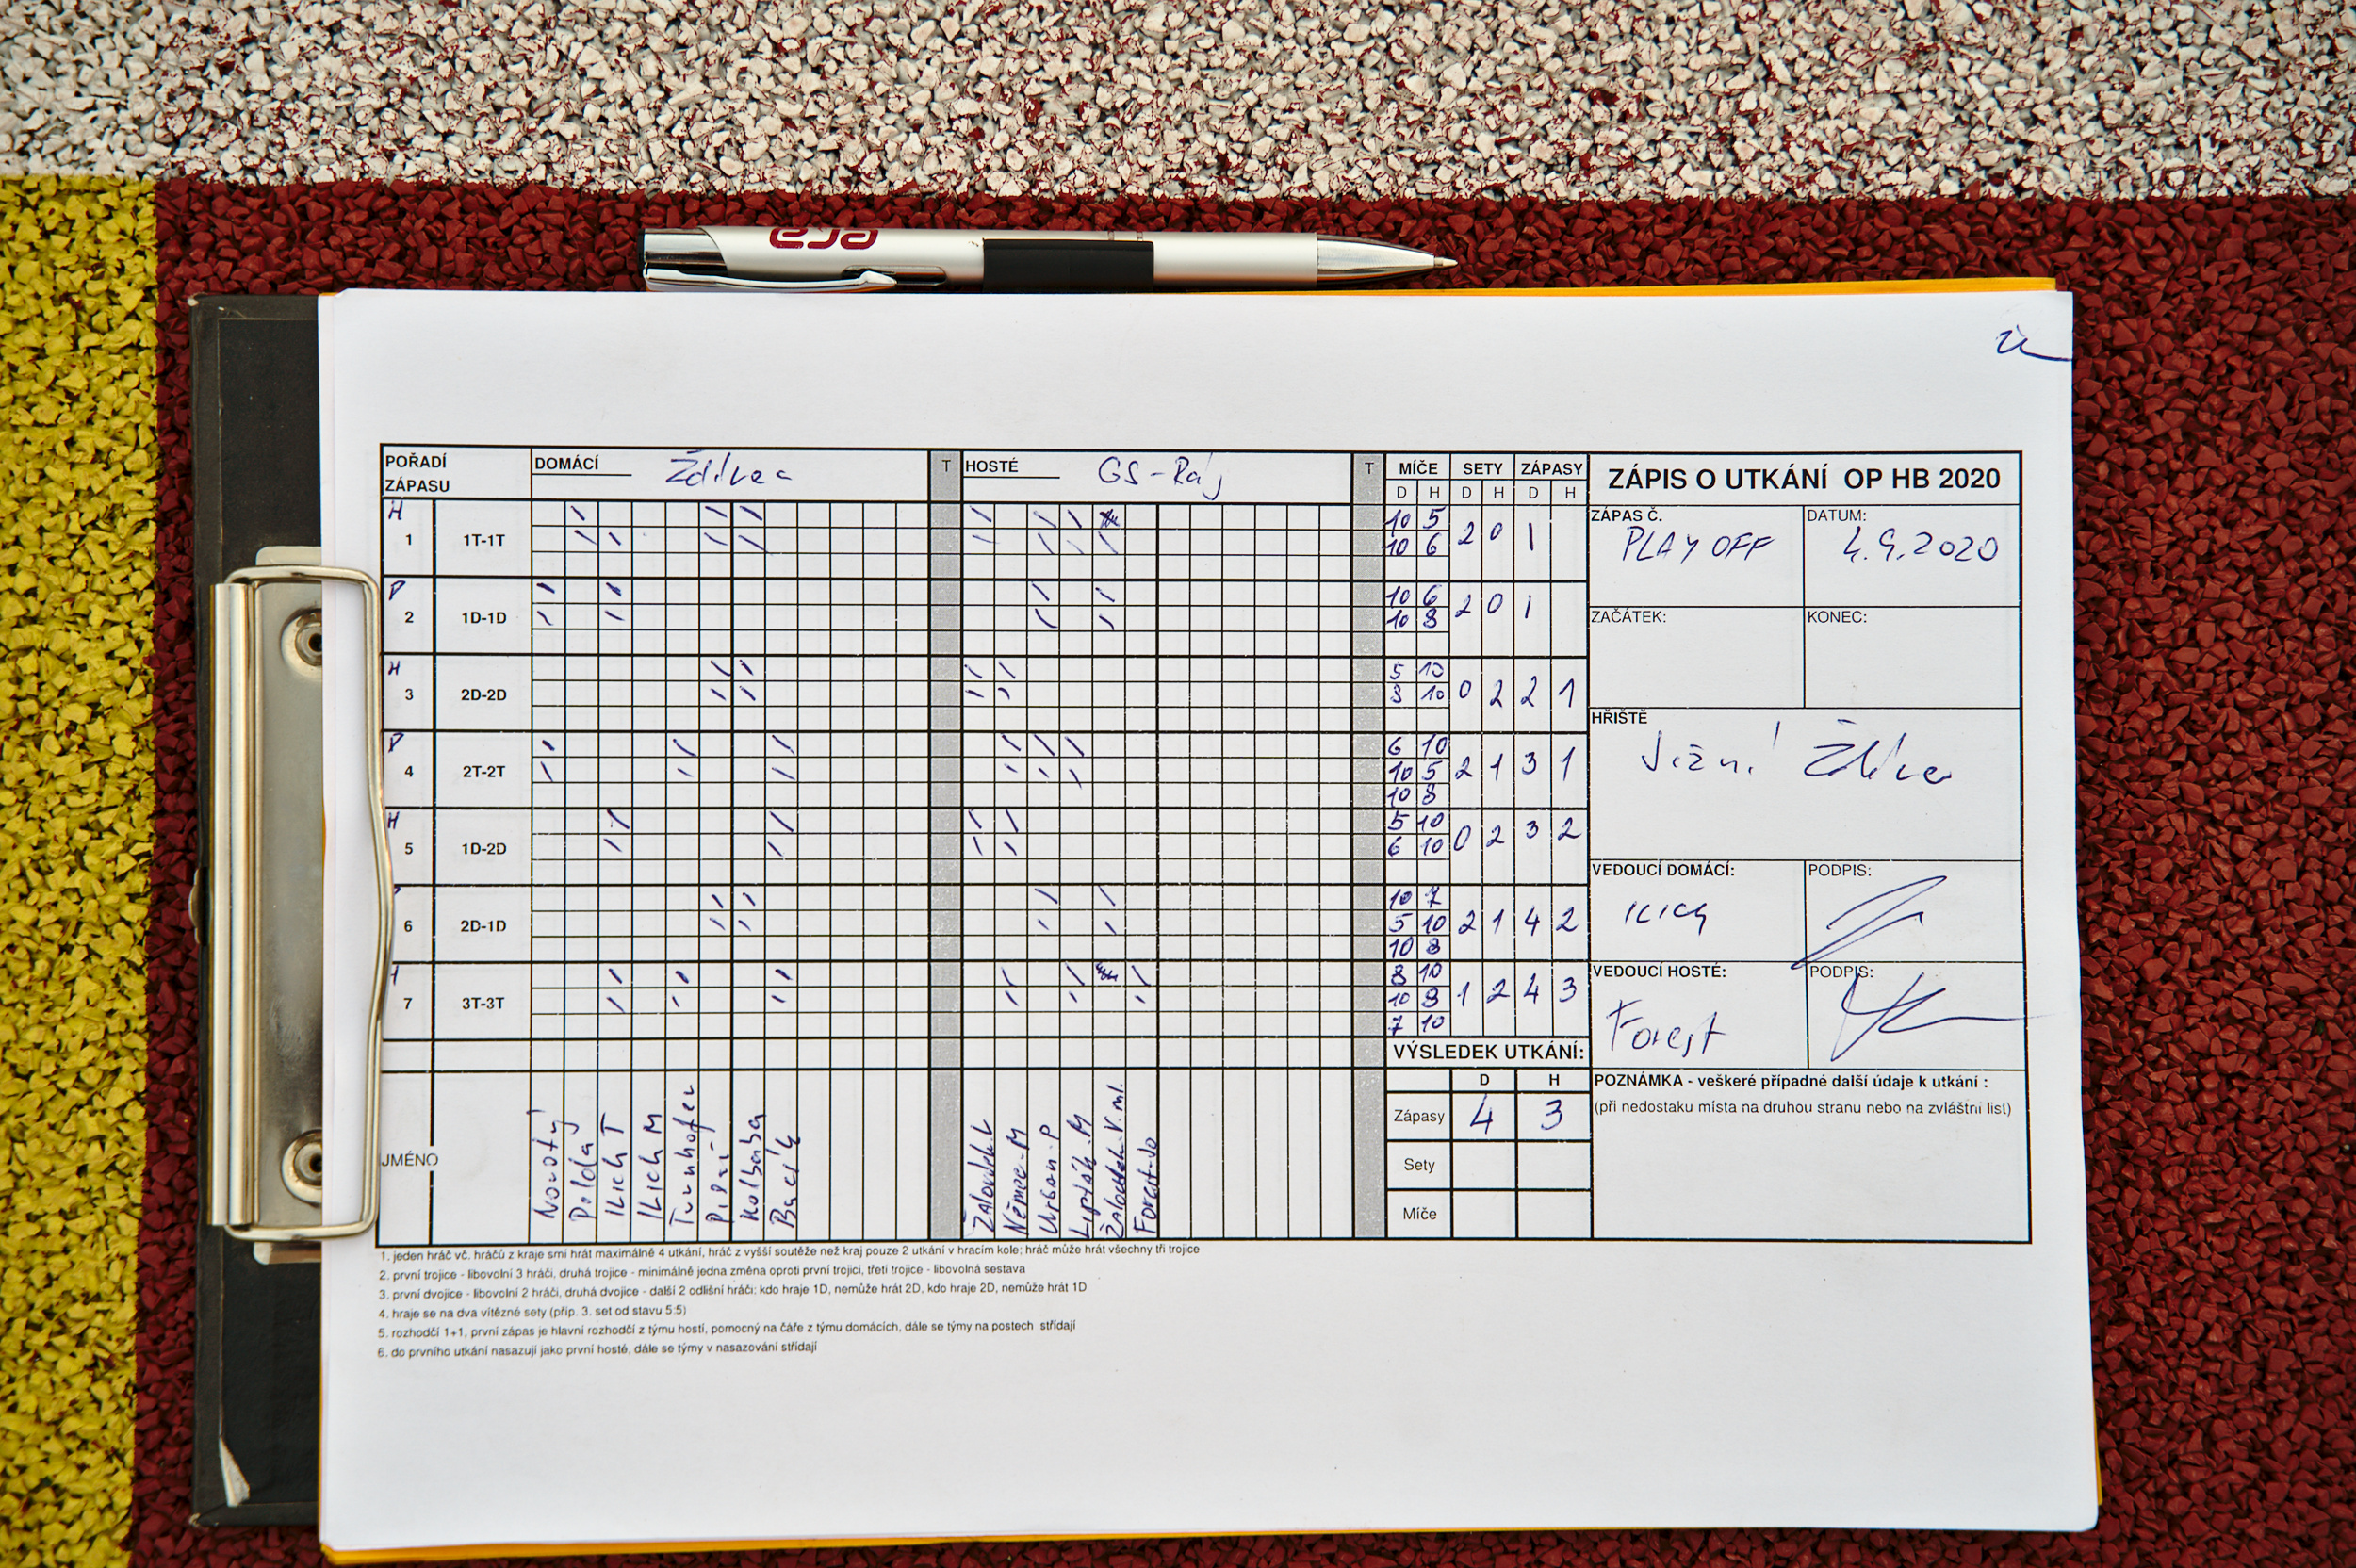 eja
POŘADÍ ZÁPASU DOMÁCÍ Ždírec T HOSTÉ GS-Ráj T MÍČE SETY ZÁPASY
D H D H D H
H 1 1T-1T 10 5 10 6 2 0 1
P 2 1D-1D 10 6 10 8 2 0 1
H 3 2D-2D 5 10 8 10 0 2 2 1
P 4 2T-2T 6 10 10 5 10 8 2 1 3 1
H 5 1D-2D 5 10 6 10 0 2 3 2
6 2D-1D 10 7 5 10 10 8 2 1 4 2
7 3T-3T 8 10 10 8 7 10 1 2 4 3
JMÉNO
Novotný
Polda
ILich T
ILich M
Turnhofer
Kolbaba
Bacík
Žaloudek.L
Němec.M
Urban.P
Lipták.M
Žaloudek.V.ml.
Forest.Jo
VÝSLEDEK UTKÁNÍ:
D H
Zápasy 4 3
Sety
Míče
ZÁPIS O UTKÁNÍ OP HB 2020
ZÁPAS Č. PLAY OFF
DATUM: 4.9.2020
ZAČÁTEK:
KONEC:
HŘIŠTĚ
Jižní
VEDOUCÍ DOMÁCÍ: ILICH
PODPIS:
VEDOUCÍ HOSTÉ: Forest
PODPIS:
POZNÁMKA - veškeré případné další údaje k utkání :
(při nedostaku místa na druhou stranu nebo na zvláštní list)
1. jeden hráč vč. hráčů z kraje smí hrát maximálně 4 utkání, hráč z vyšší soutěže než kraj pouze 2 utkání v hracím kole; hráč může hrát všechny tři trojice
2. první trojice - libovolní 3 hráči, druhá trojice - minimálně jedna změna oproti první trojici, třetí trojice - libovolná sestava
3. první dvojice - libovolní 2 hráči, druhá dvojice - další 2 odlišní hráči; kdo hraje 1D, nemůže hrát 2D, kdo hraje 2D, nemůže hrát 1D
4. hraje se na dva vítězné sety (příp. 3. set od stavu 5:5)
5. rozhodčí 1+1, první zápas je hlavní rozhodčí z týmu hostí, pomocný na čáře z týmu domácích, dále se týmy na postech střídají
6. do prvního utkání nasazují jako první hosté, dále se týmy v nasazování střídají